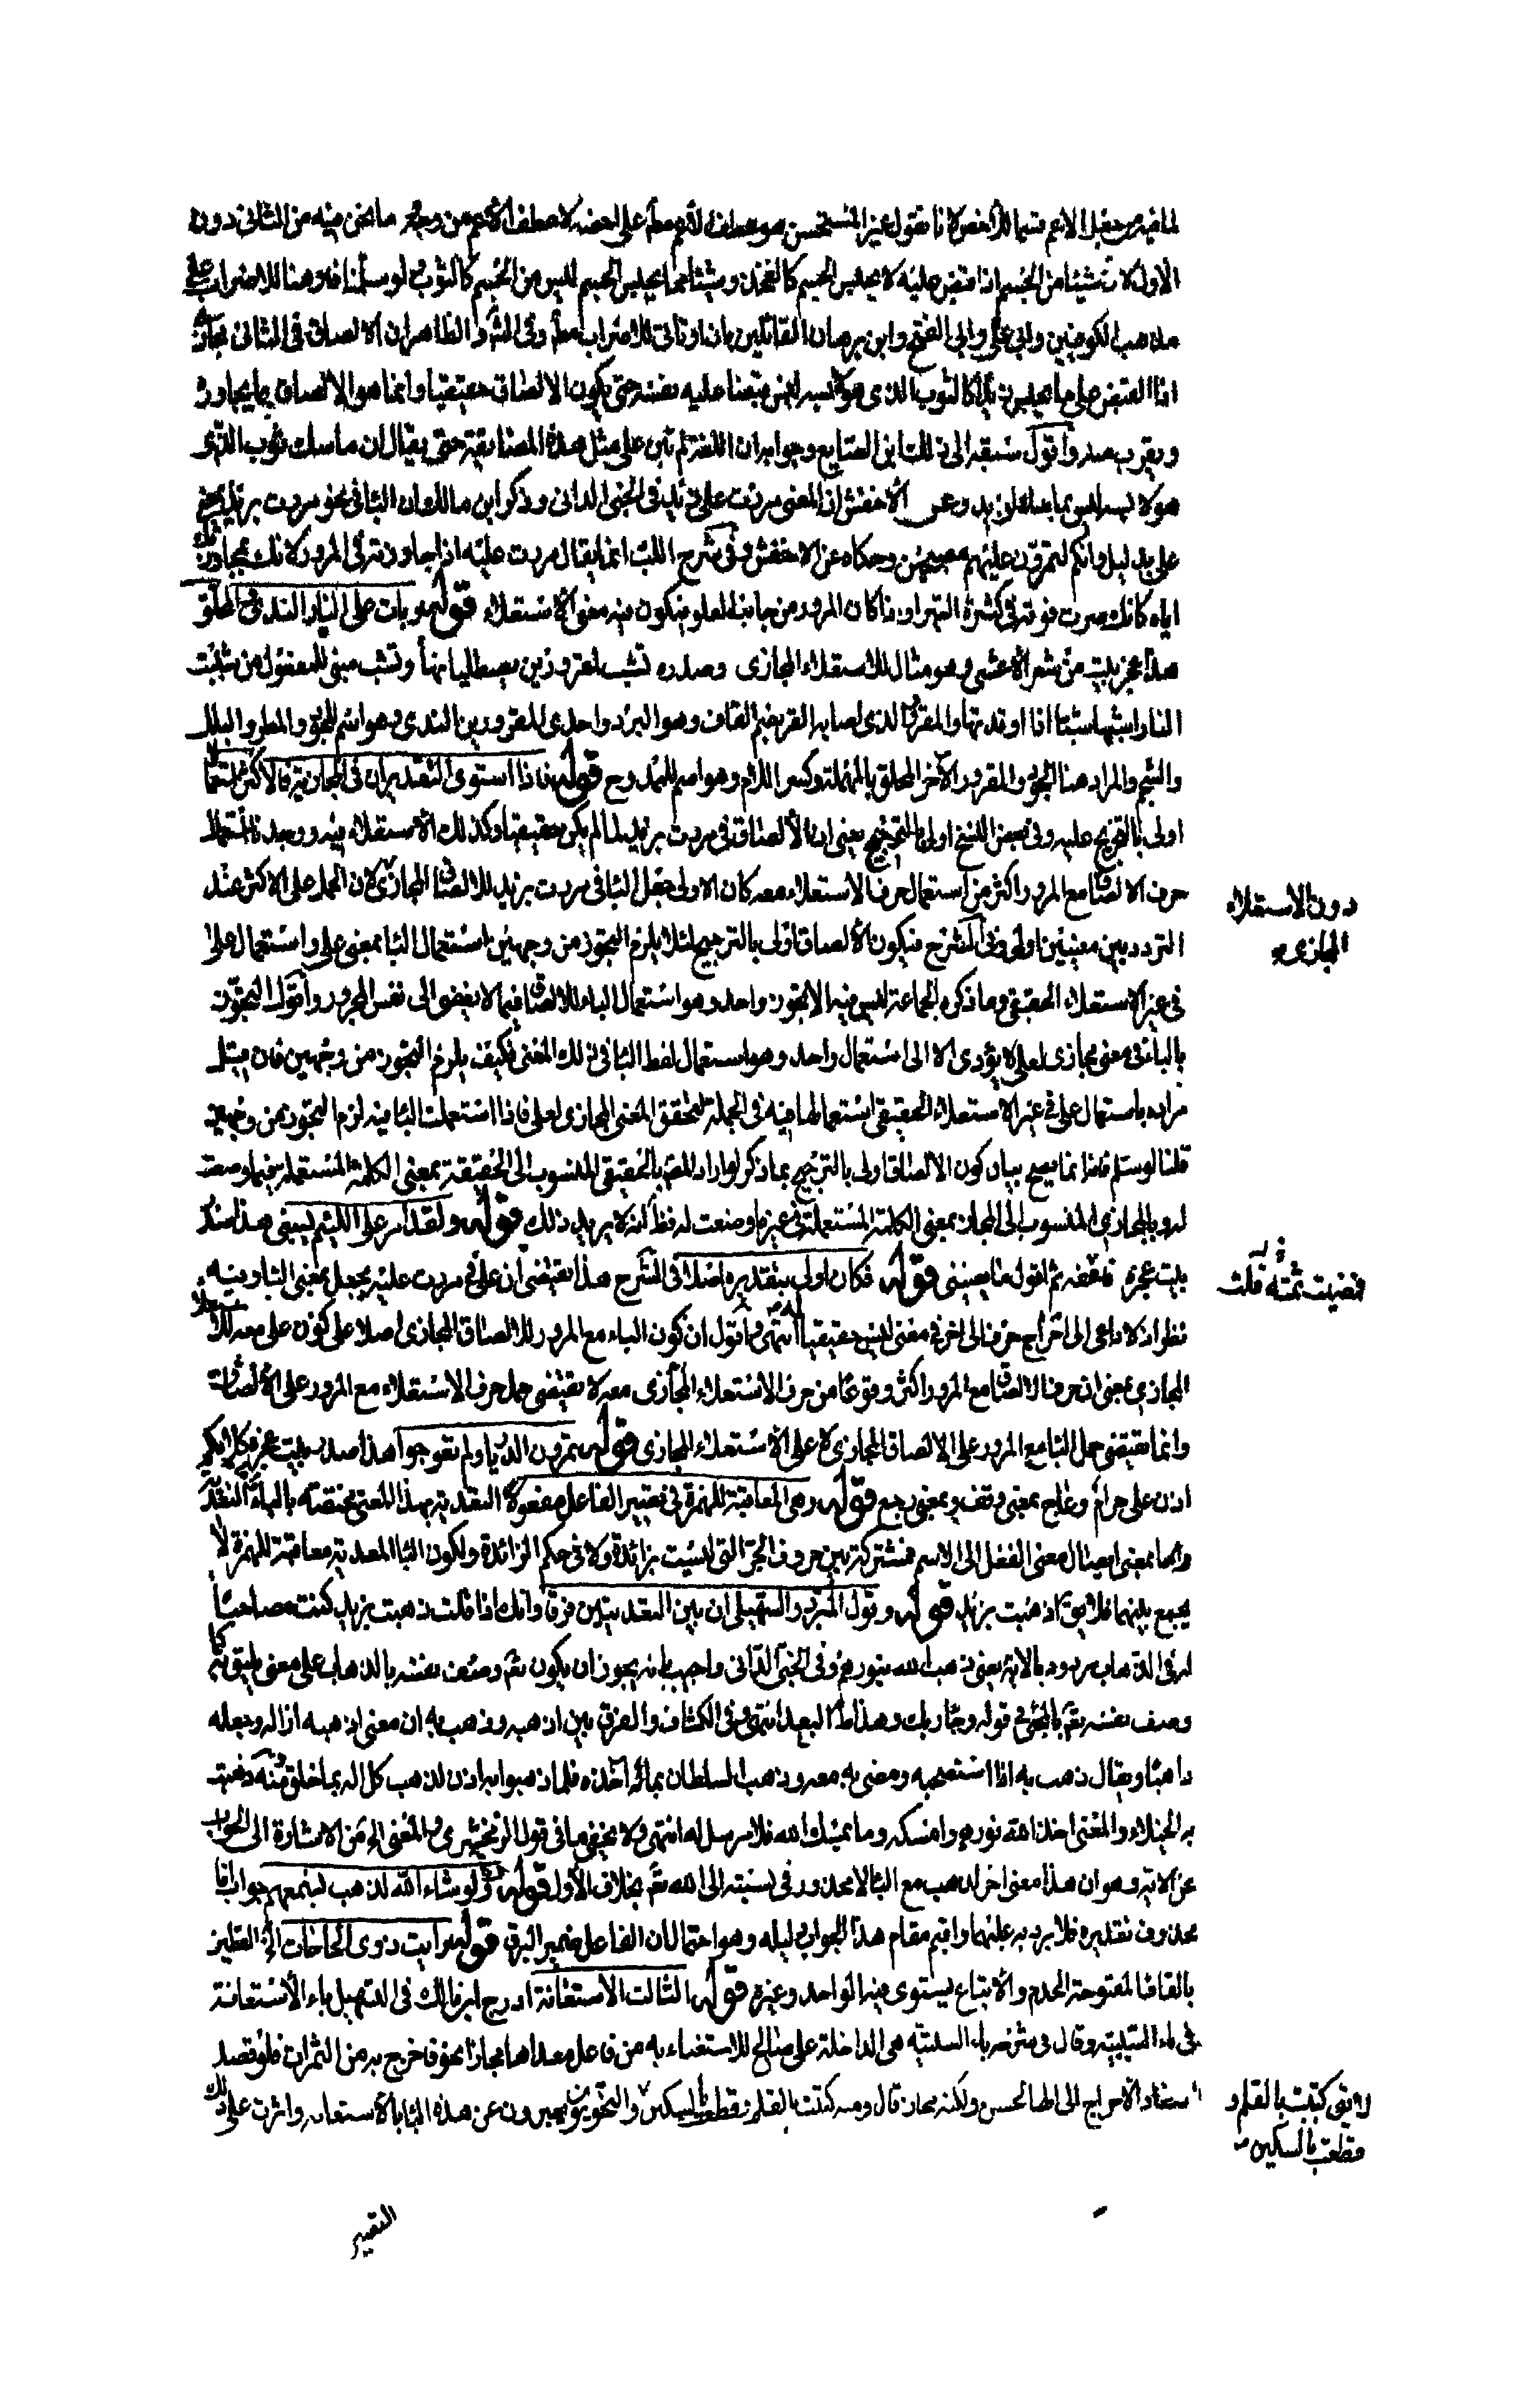 لما فيه من جعل الاعم قسيما للاخص لانا نقول غير المستحسن هو عطف الاعم مطلقا على اخصه لا عطف الاعم من وجه وما نحن فيه من الثاني دون
الاول لان شيئا من الجسم اذا قبض عليه لا يحبس الجسم كالفخذ وشيئا مما يحبس الجسم ليس من الجسم كالثوب لو سلمنا فاو هنا للاضراب على
مذهب الكوفيين وابي علي وابي الفتح وابن برهان القائلين بان او تاتي للاضراب مطلقا وفي الشرح الظاهر ان الالصاق في الثاني مجازي
اذ القبض على ما يحبس زيدا كالثوب الذي هو لابسه ليس قبضا عليه نفسه حتى يكون الالصاق حقيقيا وانما هو الالصاق بما يجاوره
ويقرب منه واقول سبقه الى ذلك ابن الصايغ وجوابه ان اللغة لم تبن على مثل هذه المضايقة حتى يقال ان ماسك ثوب الذي
هو لابسه ليس بماسك لزيد وعن الاخفش ان المعنى مررت على زيد في الجنى الداني وذكر ابن مالك ان الباء في نحو مررت بزيد بمعنى
على بدليل وانكم لتمرون عليهم مصبحين وحكاه عن الاخفش وفي شرح اللب انما يقال مررت عليه اذا جاوزته في المرور لانك بمجاوزتك
اياه كانك صرت فوقه في كثرة السير او اذا كان المرور من جانب العلو فيكون فيه معنى الاستعلاء قوله وبات على النار الندى والمحلق
هذا عجز بيت من شعر الاعشى وهو مثال للاستعلاء المجازي وصدره تشب لمقرورين يصطليانها وتشب مبني للمفعول من شببت
النار اشبها شبا اذا اوقدتها والمقرور الذي اصابه القر بضم القاف وهو البرد واحد المقرورين الندى وهو اسم للجود والمطر والبلل
والشحم والمراد هنا الجود والمقرور الاخر المحلق بالمهملة وكسر اللام وهو اسم الممدوح قوله فاذا استوى التقديران في المجازية فالاكثر استعمالا
اولى بالتخريج عليه وفي بعض النسخ اولى بالترجيح يعني ان الالصاق في مررت بزيد لما لم يكن حقيقيا وكذلك الاستعلاء فيه ووجدنا استعمال
حرف الالصاق مع المرور اكثر من استعمال حرف الاستعلاء معه كان الاولى جعل الباء في مررت بزيد للالصاق المجازي لان الحمل على الاكثر عند
دون الاستعلاء
المجازي صح
التردد بين معنيين اولى وفي الشرح فيكون الالصاق اولى بالترجيح لئلا يلزم التجوز من وجهين استعمال الباء بمعنى على واستعمال على
في غير الاستعلاء الحقيقي وما ذكره الجماعة ليس فيه الا تجوز واحد وهو استعمال الباء للالصاق فيما لا يفضي الى نفس المجرور واقول التجوز
بالباء في معنى مجازي لعلى لا يؤدي الا الى استعمال واحد وهو استعمال لفظ الباء في ذلك المعنى فكيف يلزم التجوز من وجهين فان قيل
مراده باستعمال على في غير الاستعلاء الحقيقي استعمالها فيه في الجملة لتحقق المعنى المجازي لعلى فاذا استعملت الباء فيه لزم التجوز من وجهين
قلنا لو سلم فهذا انما يصح بيان كون الالصاق اولى بالترجيح بما ذكر لو اراد المص بالحقيقي المنسوب الى الحقيقة بمعنى الكلمة المستعملة فيما وضعت
له وبالمجازي المنسوب الى المجاز بمعنى الكلمة المستعملة في غير ما وضعت له فظ انه لا يريد ذلك قوله ولقد امر على اللئيم يسبني هذا صدر
بيت عجزه فاعف ثم اقول ما يعنيني قوله فكان اولى بتقديره اصلا في الشرح هذا يقتضي ان على في مررت عليه يجعل بمعنى الباء وفيه
فمضيت ثمة قلت
نظر اذ لا داعي الى اخراج حرف الى اخر في معنى ليس حقيقيا انتهى واقول ان كون الباء مع المرور للالصاق المجازي اصلا على كون على معه للاستعلاء
المجازي بمعنى ان حرف الالصاق مع المرور اكثر وقوعا من حرف الاستعلاء المجازي معه لا يقتضي حمل حرف الاستعلاء مع المرور على الالصاق
وانما يقتضي حمل الباء مع المرور على الالصاق المجازي لا على الاستعلاء المجازي قوله تمرون الديار ولم تعوجوا هذا صدر بيت عجزه كلامكم
اذن على حرام وعاج بمعنى وقف وبمعنى رجع قوله وهي المعاقبة للهمزة في تصيير الفاعل مفعولا التعدية بهذا المعنى مختصة بالباء واما التعدية
وانها بمعنى ايصال معنى الفعل الى الاسم فمشتركة بين حروف الجر التي ليست بزائدة ولا في حكم الزائدة ولكون الباء المعدية معاقبة للهمزة لا
يجمع بينهما فلا يق اذهبت بزيد قوله وقول المبرد والسهيلي ان بين التعديتين فرقا وانك اذا قلت ذهبت بزيد كنت مصاحبا
له في الذهاب مردود بالاية يعني ذهب الله بنورهم وفي الجنى الداني واجيب بانه يجوز ان يكون تعالى وصف نفسه بالذهاب على معنى يليق به كما
وصف نفسه تعالى بالمجيء في قوله وجاء ربك وهذا ظاهر البعد انتهى وفي الكشاف والفرق بين اذهبه وذهب به ان معنى اذهبه ازاله وجعله
ذاهبا ويقال ذهب به اذا استصحبه ومضى به معه وذهب السلطان بماله اخذه فلما ذهبوا به اذن لذهب كل اله بما خلق ومنه ذهبت
به الخيلاء والمعنى اخذ الله نورهم وامسكه وما يمسك الله فلا مرسل له انتهى ولا يخفى ما في قول الزمخشري والمعنى الخ من الاشارة الى الجواب
عن الاية وهو ان هذا معنى اخر لذهب مع الباء لا محذور في نسبته الى الله تعالى بخلاف الاول قوله ولو شاء الله لذهب بسمعهم جواب اما
محذوف تقديره فلا يرد به عليهما واقيم مقام هذا الجواب دليله وهو احتمال ان الفاعل ضمير البرق قوله رايت ذوي الحاجات الخ القطين
بالقاف المفتوحة الخدم والاتباع يستوي فيه الواحد وغيره قوله الثالث الاستعانة ادرج ابن مالك في التسهيل باء الاستعانة
في باء السببية وقال في شرحه باء السببية هي الداخلة على صالح للاستغناء به من فاعل معداها مجازا نحو فاخرج به من الثمرات فلو قصد
اسناد الاخراج الى الهاء لحسن ولكنه مجاز قال ومنه كتبت بالقلم وقطعت بالسكين والنحويون يعبرون عن هذه الباء بالاستعانة واثرت على ذلك
لا يق كتبت بالقلم و
قطعت بالسكين صح
التعبير